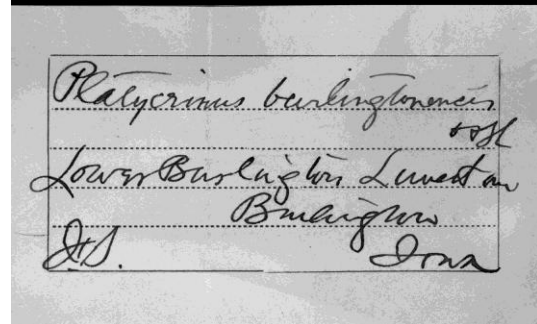 Platycrinus burlingtonencis
O & SH
Lower Burlington Limestone
Burlington
Iowa